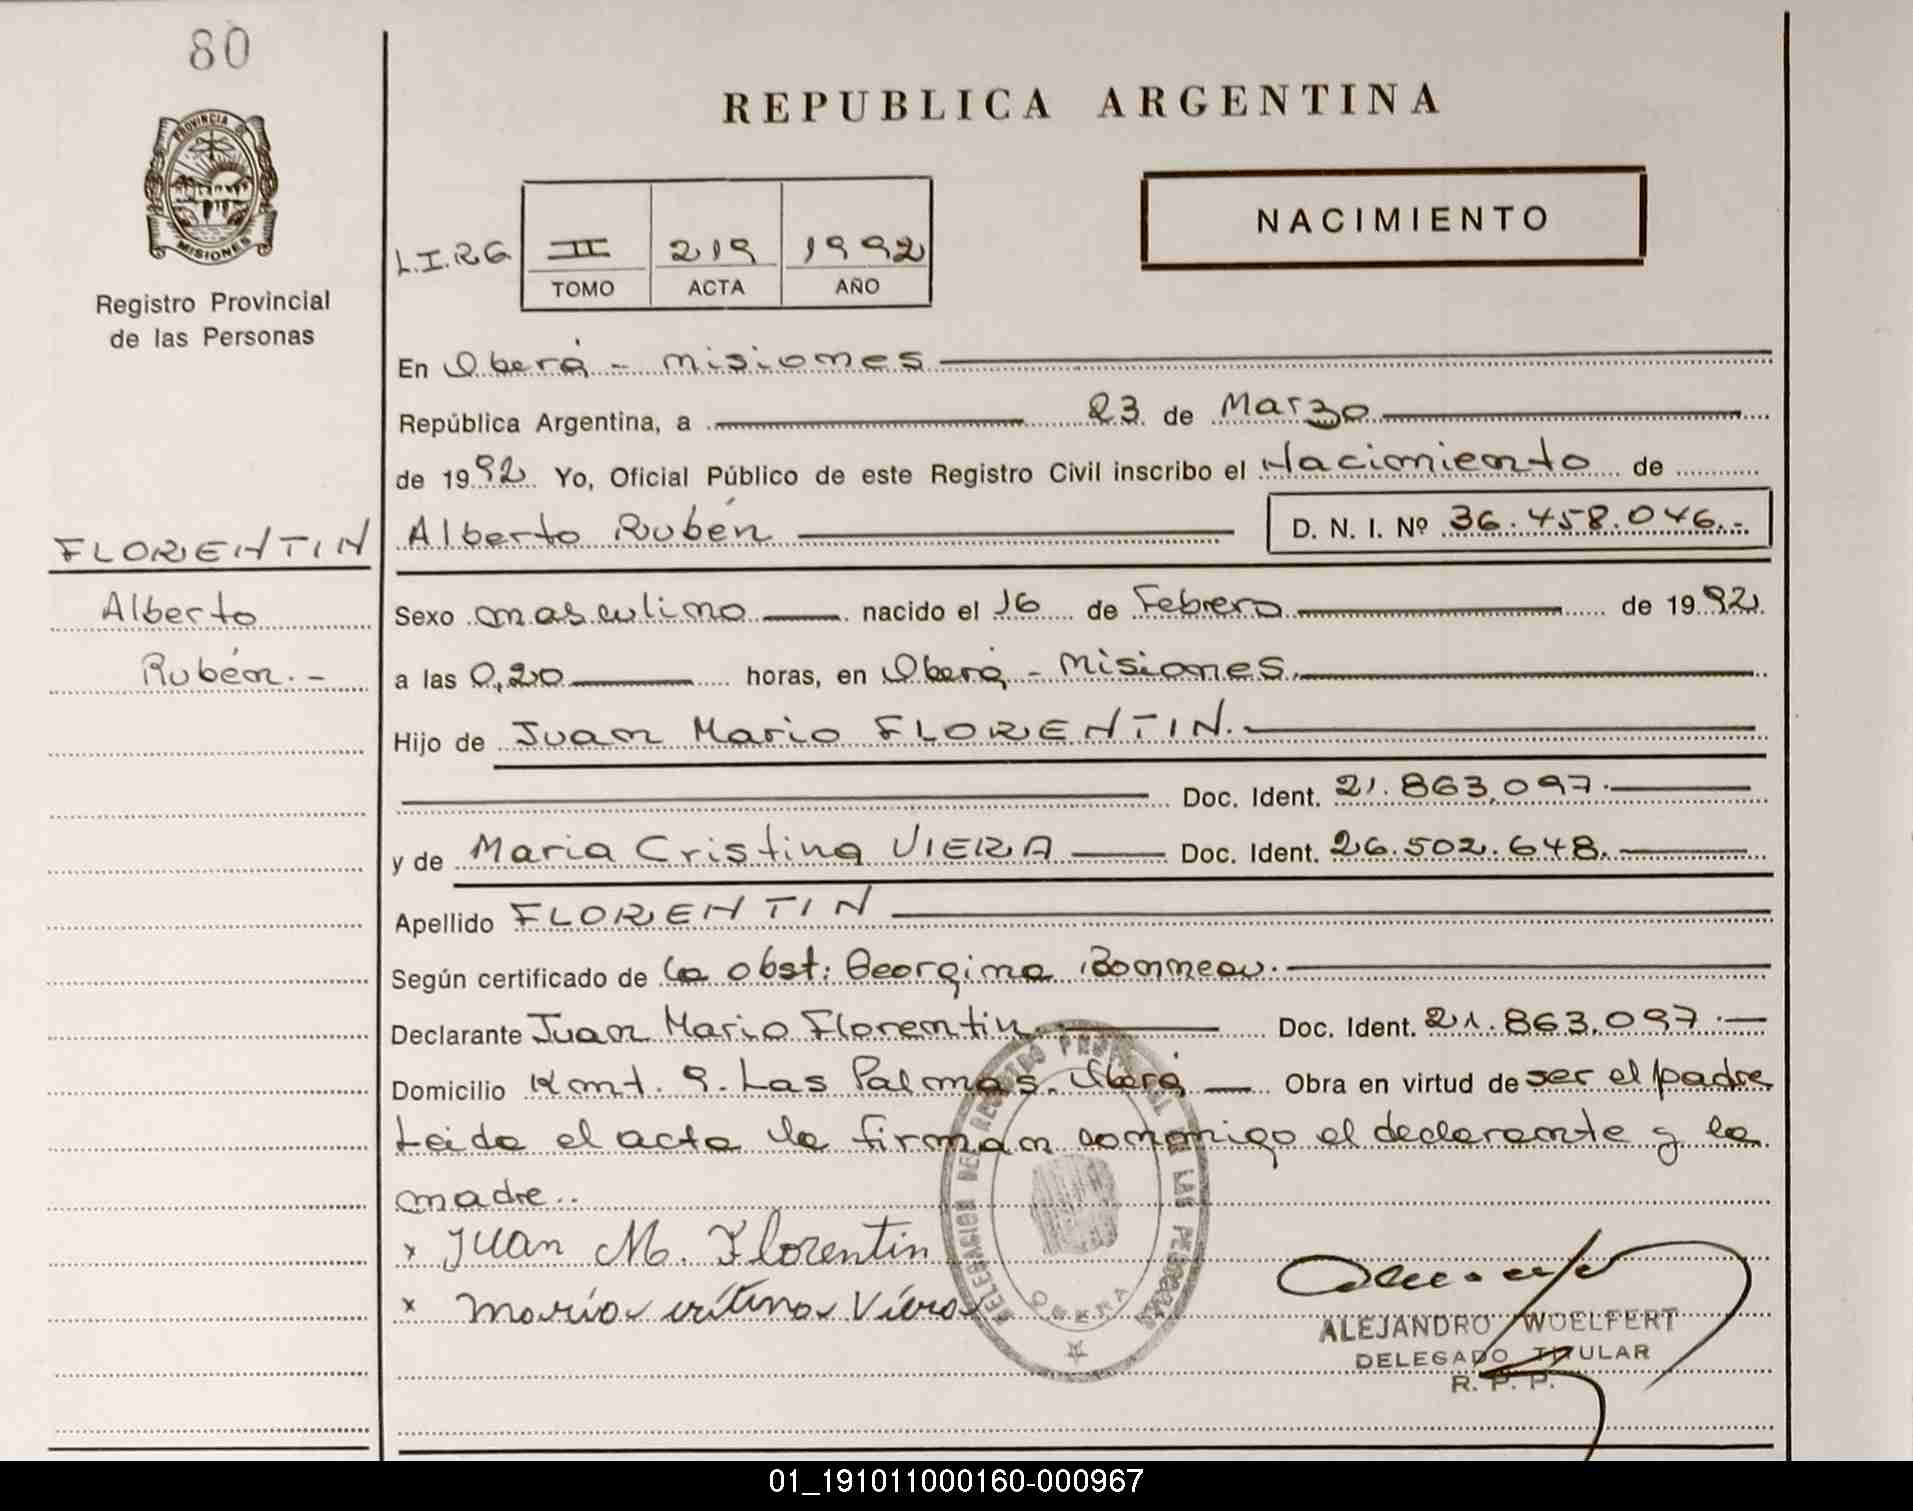 80
PROVINCIA DE
MISIONES
Registro Provincial
de las Personas
REPUBLICA ARGENTINA
NACIMIENTO
L.I.RG II 219 1992
TOMO ACTA AÑO
En Oberá - Misiones
República Argentina, a 23 de Marzo
de 1992 Yo, Oficial Público de este Registro Civil inscribo el Nacimiento de
Alberto Rubén D. N. I. Nº 36.458.046.-
FLORENTIN
Alberto
Rubén.-
Sexo masculino nacido el 16 de Febrero de 1992
a las 0,20 horas, en Oberá - Misiones.
Hijo de Juan Mario FLORENTIN.
Doc. Ident. 21.863.097.
y de Maria Cristina VIERA Doc. Ident. 26.502.648.
Apellido FLORENTIN
Según certificado de la obst: Georgina Bonneau.
Declarante Juan Mario Florentin Doc. Ident. 21.863.097.
Domicilio Kmt. 9. Las Palmas. Oberá Obra en virtud de ser el padre
Leida el acta la firman conmigo el declarante y la
madre..
x Juan M. Florentin
x Maria critina Viera
DELEGACION DEL REGISTRO PROVINCIAL DE LAS PERSONAS
OBERA
ALEJANDRO WOELFERT
DELEGADO TITULAR
R. P. P.
01_191011000160-000967